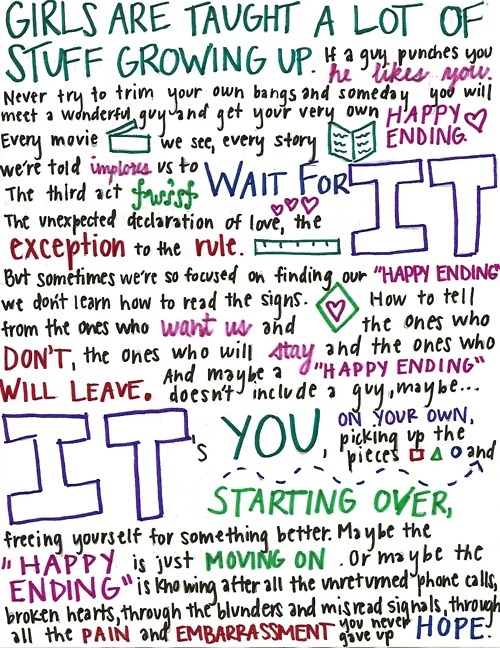 GIRLS ARE TAUGHT A LOT OF
STUFF GROWING UP. If a guy punches you
he likes you.
Never try to trim your own bangs and someday you will
meet a wonderful guy and get your very own HAPPY
ENDING.
Every movie we see, every story
we're told implores us to WAIT FOR IT
The third act twist
The unexpected declaration of love, the
exception to the rule.
But sometimes we're so focused on finding our "HAPPY ENDING"
we don't learn how to read the signs. How to tell
from the ones who want us and the ones who
DON'T, the ones who will stay and the ones who
WILL LEAVE. And maybe a "HAPPY ENDING"
doesn't include a guy, maybe...
IT's YOU, ON YOUR OWN,
picking up the
pieces and
STARTING OVER,
freeing yourself for something better. Maybe the
"HAPPY ENDING" is just MOVING ON. Or maybe the
is knowing after all the unreturned phone calls,
broken hearts, through the blunders and misread signals, through
all the PAIN and EMBARRASSMENT you never gave up HOPE.